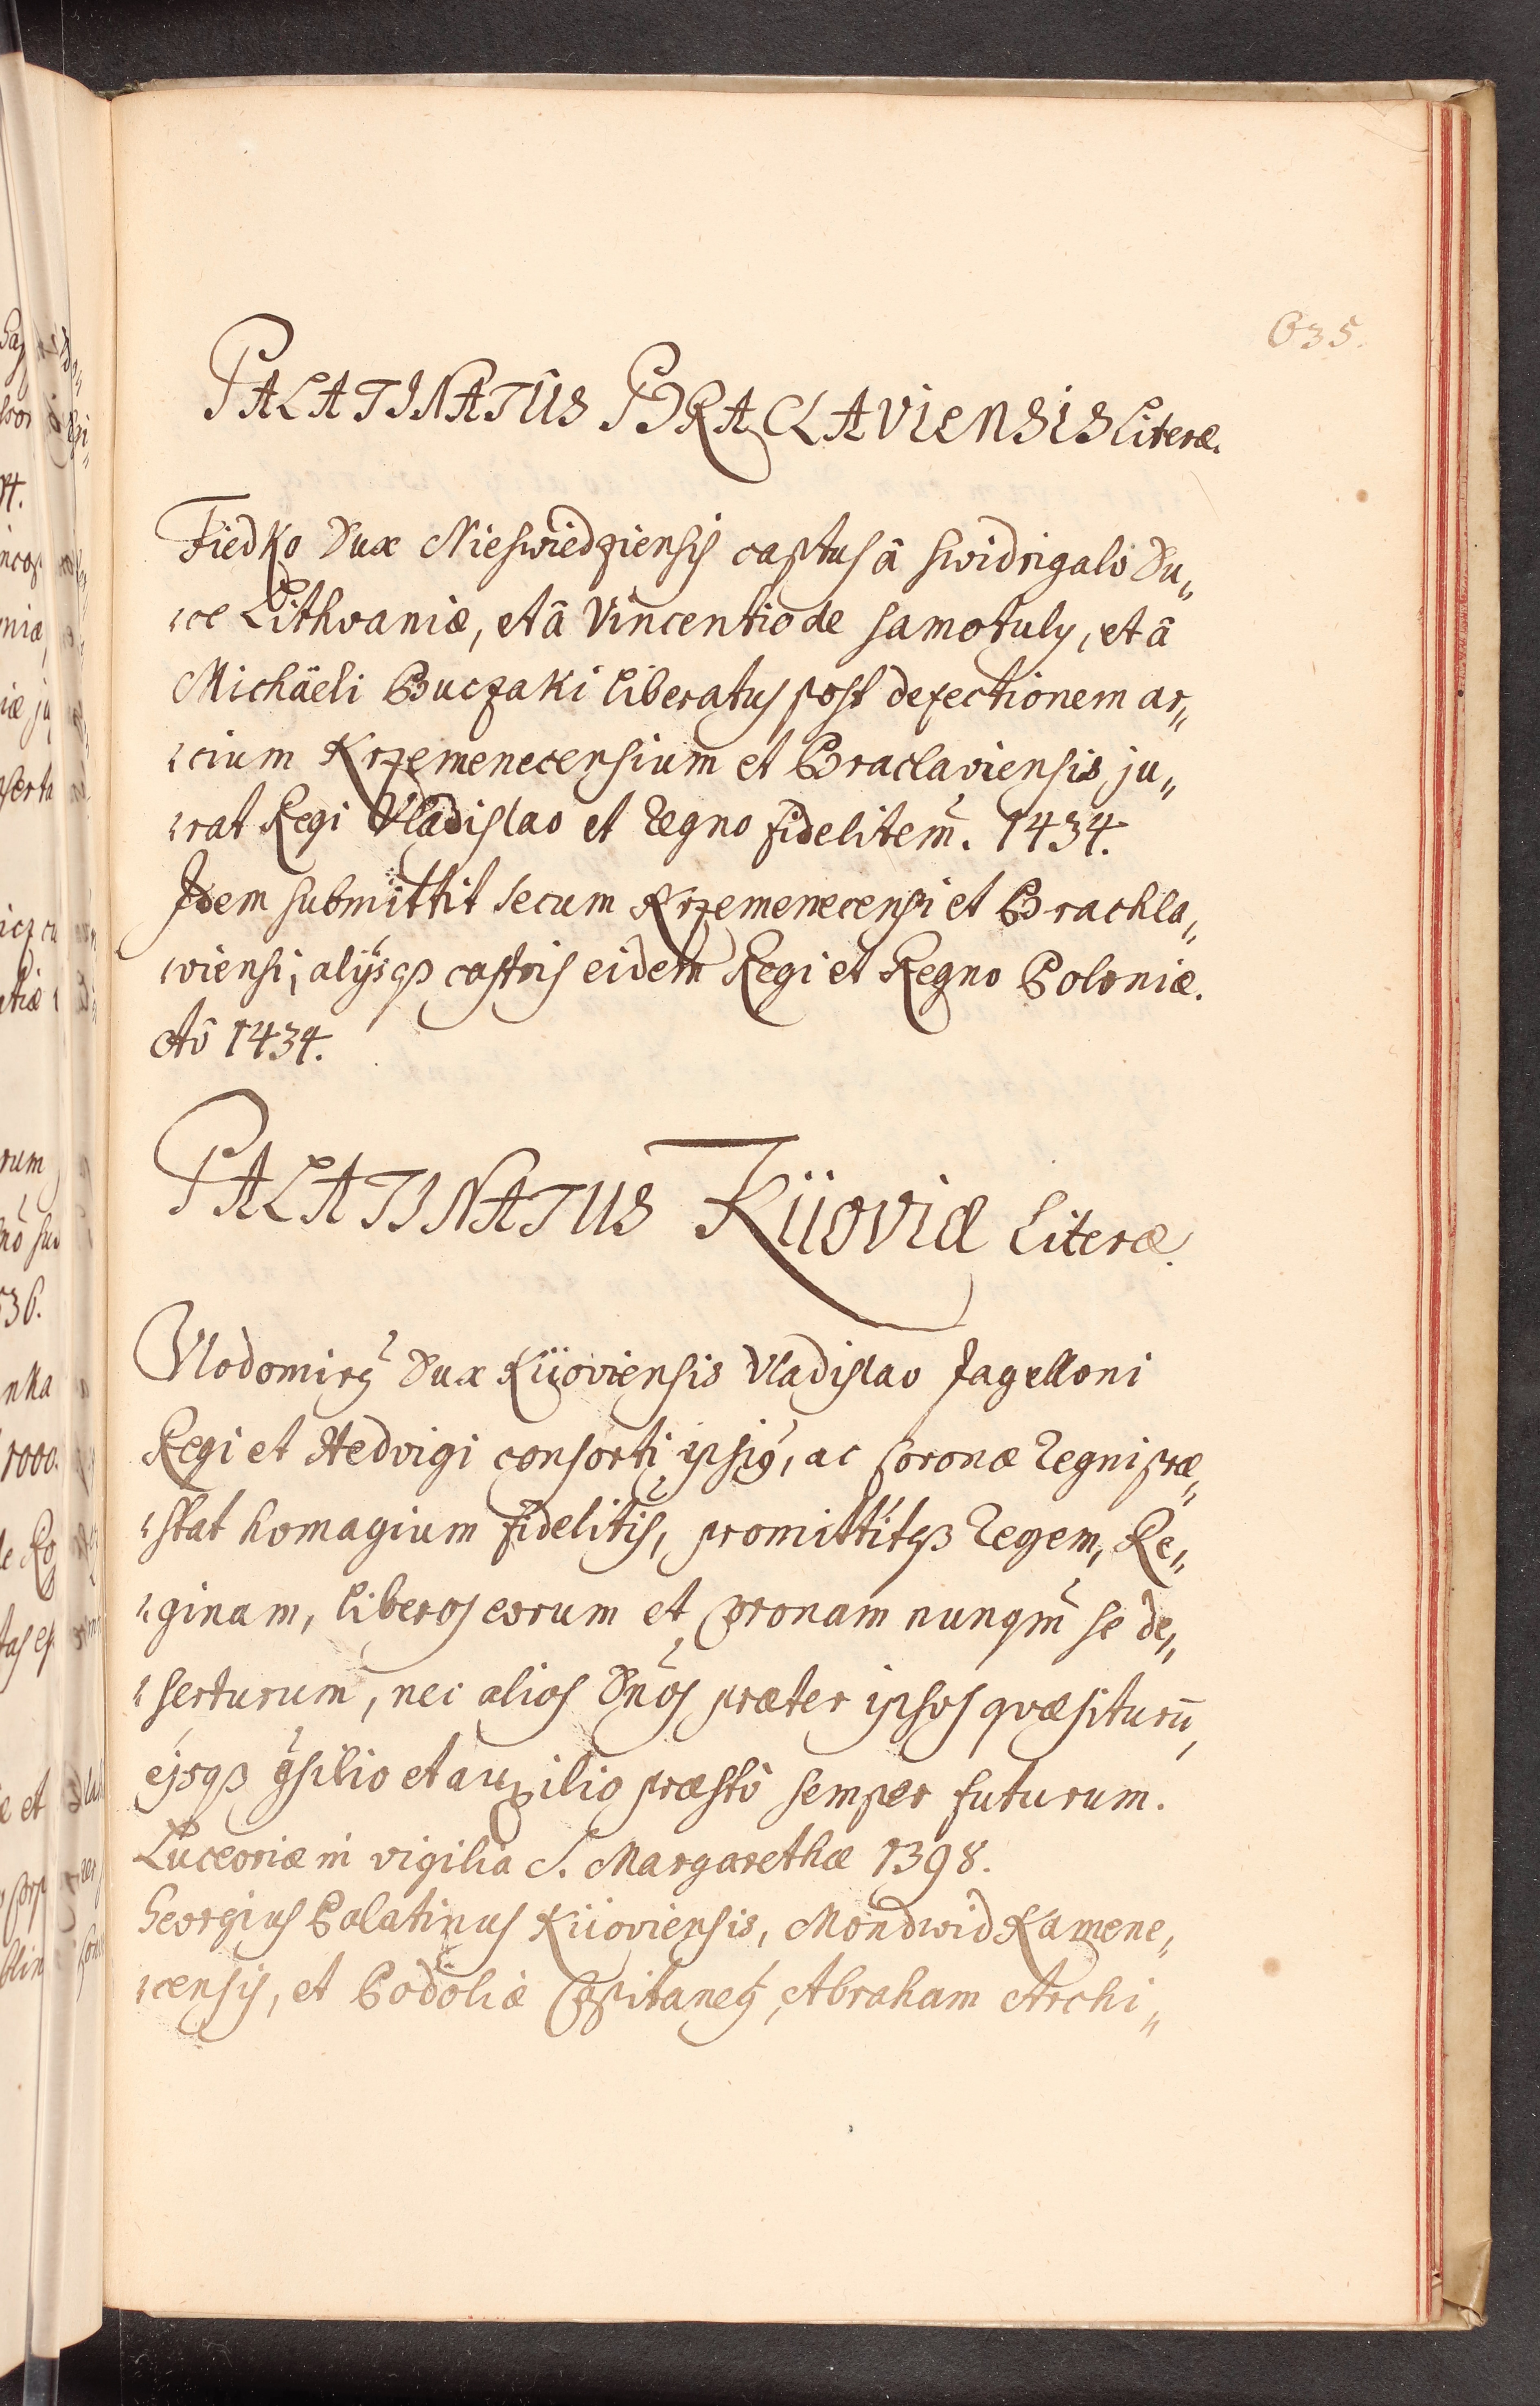 635.
PALATINATUS BRACLAVIENSIS Literæ.
Fiedko Dux Nieswiedziensis captus â Swidrigalo Du„
„ce Lithvaniæ, et â Vincentio de Samotuly, et â
Michäeli Buczaki liberatus post defectionem ar„
„cium Krzemenecensium et Braclaviensis ju„
„rat Regi Vladislao et Regno fidelitem̃. 1434.
Idem submittit secum Krzemenecensi et Brachla„
„viensi, alijsqȝ castris eidem Regi et Regno Poloniæ.
Aô 1434.
PALATINATUS KIIOVIÆ Literæ.
Vlodomirꝰ Dux Kiioviensis Vladislao Jagelloni
Regi et Hedvigi consorti ipsiꝰ, ac Coronæ Regni præ„
„stat homagium fidelitis̃, promittitqȝ Regem, Re„
„ginam, liberos eorum et Coronam nunqm̃ se de„
„serturum, nec alios Dños præter ipsos qvæsiturũ,
ejsqȝ ꝯsilio et auxilio præstô semper futurum.
Luceoriæ in vigilia S. Margarethæ 1398.
Georgius Palatinus Kiioviensis, Mondwid Kamene„
„censis, et Podoliæ Capitaneꝰ, Abraham Archi„